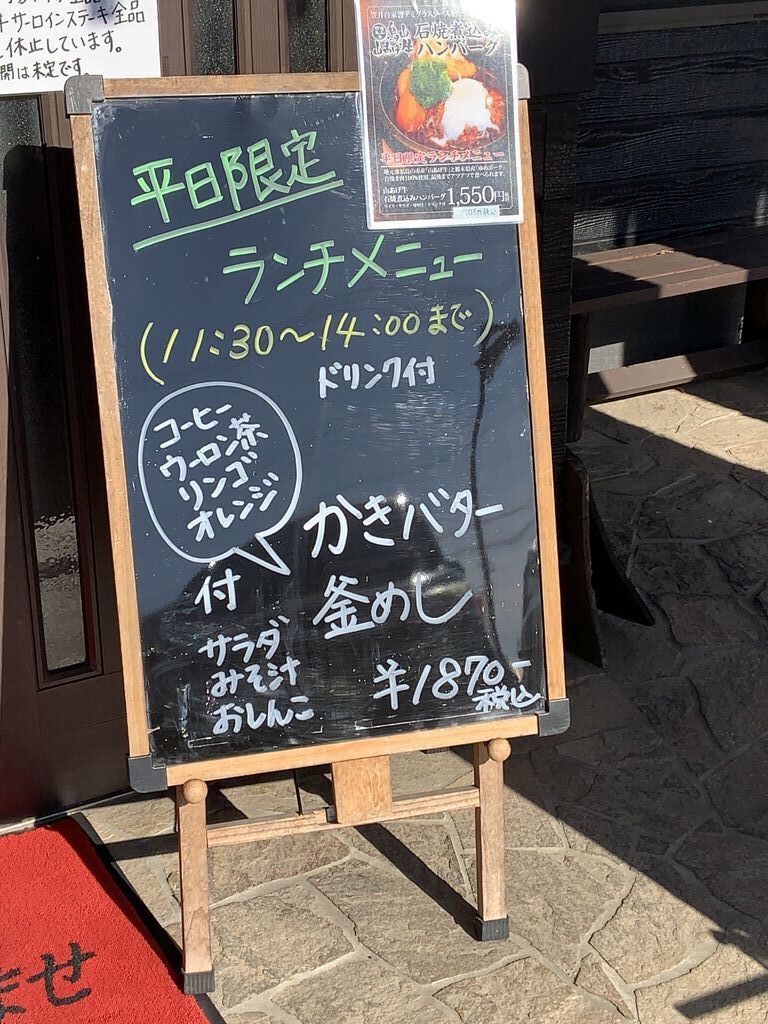 ーサーロインステーキ全品
休止しています。
開は未定です。
石焼煮込み
ハンバーグ
平日限定ランチメニュー
山あげ牛
石焼煮込みハンバーグ 1,550円
平日限定
ランチメニュー
(11:30〜14:00まで)
ドリンク付
コーヒー
ウーロン茶
リンゴ
オレンジ
かきバター
釜めし
付
サラダ
みそ汁
おしんこ
¥1870-
税込
ませ